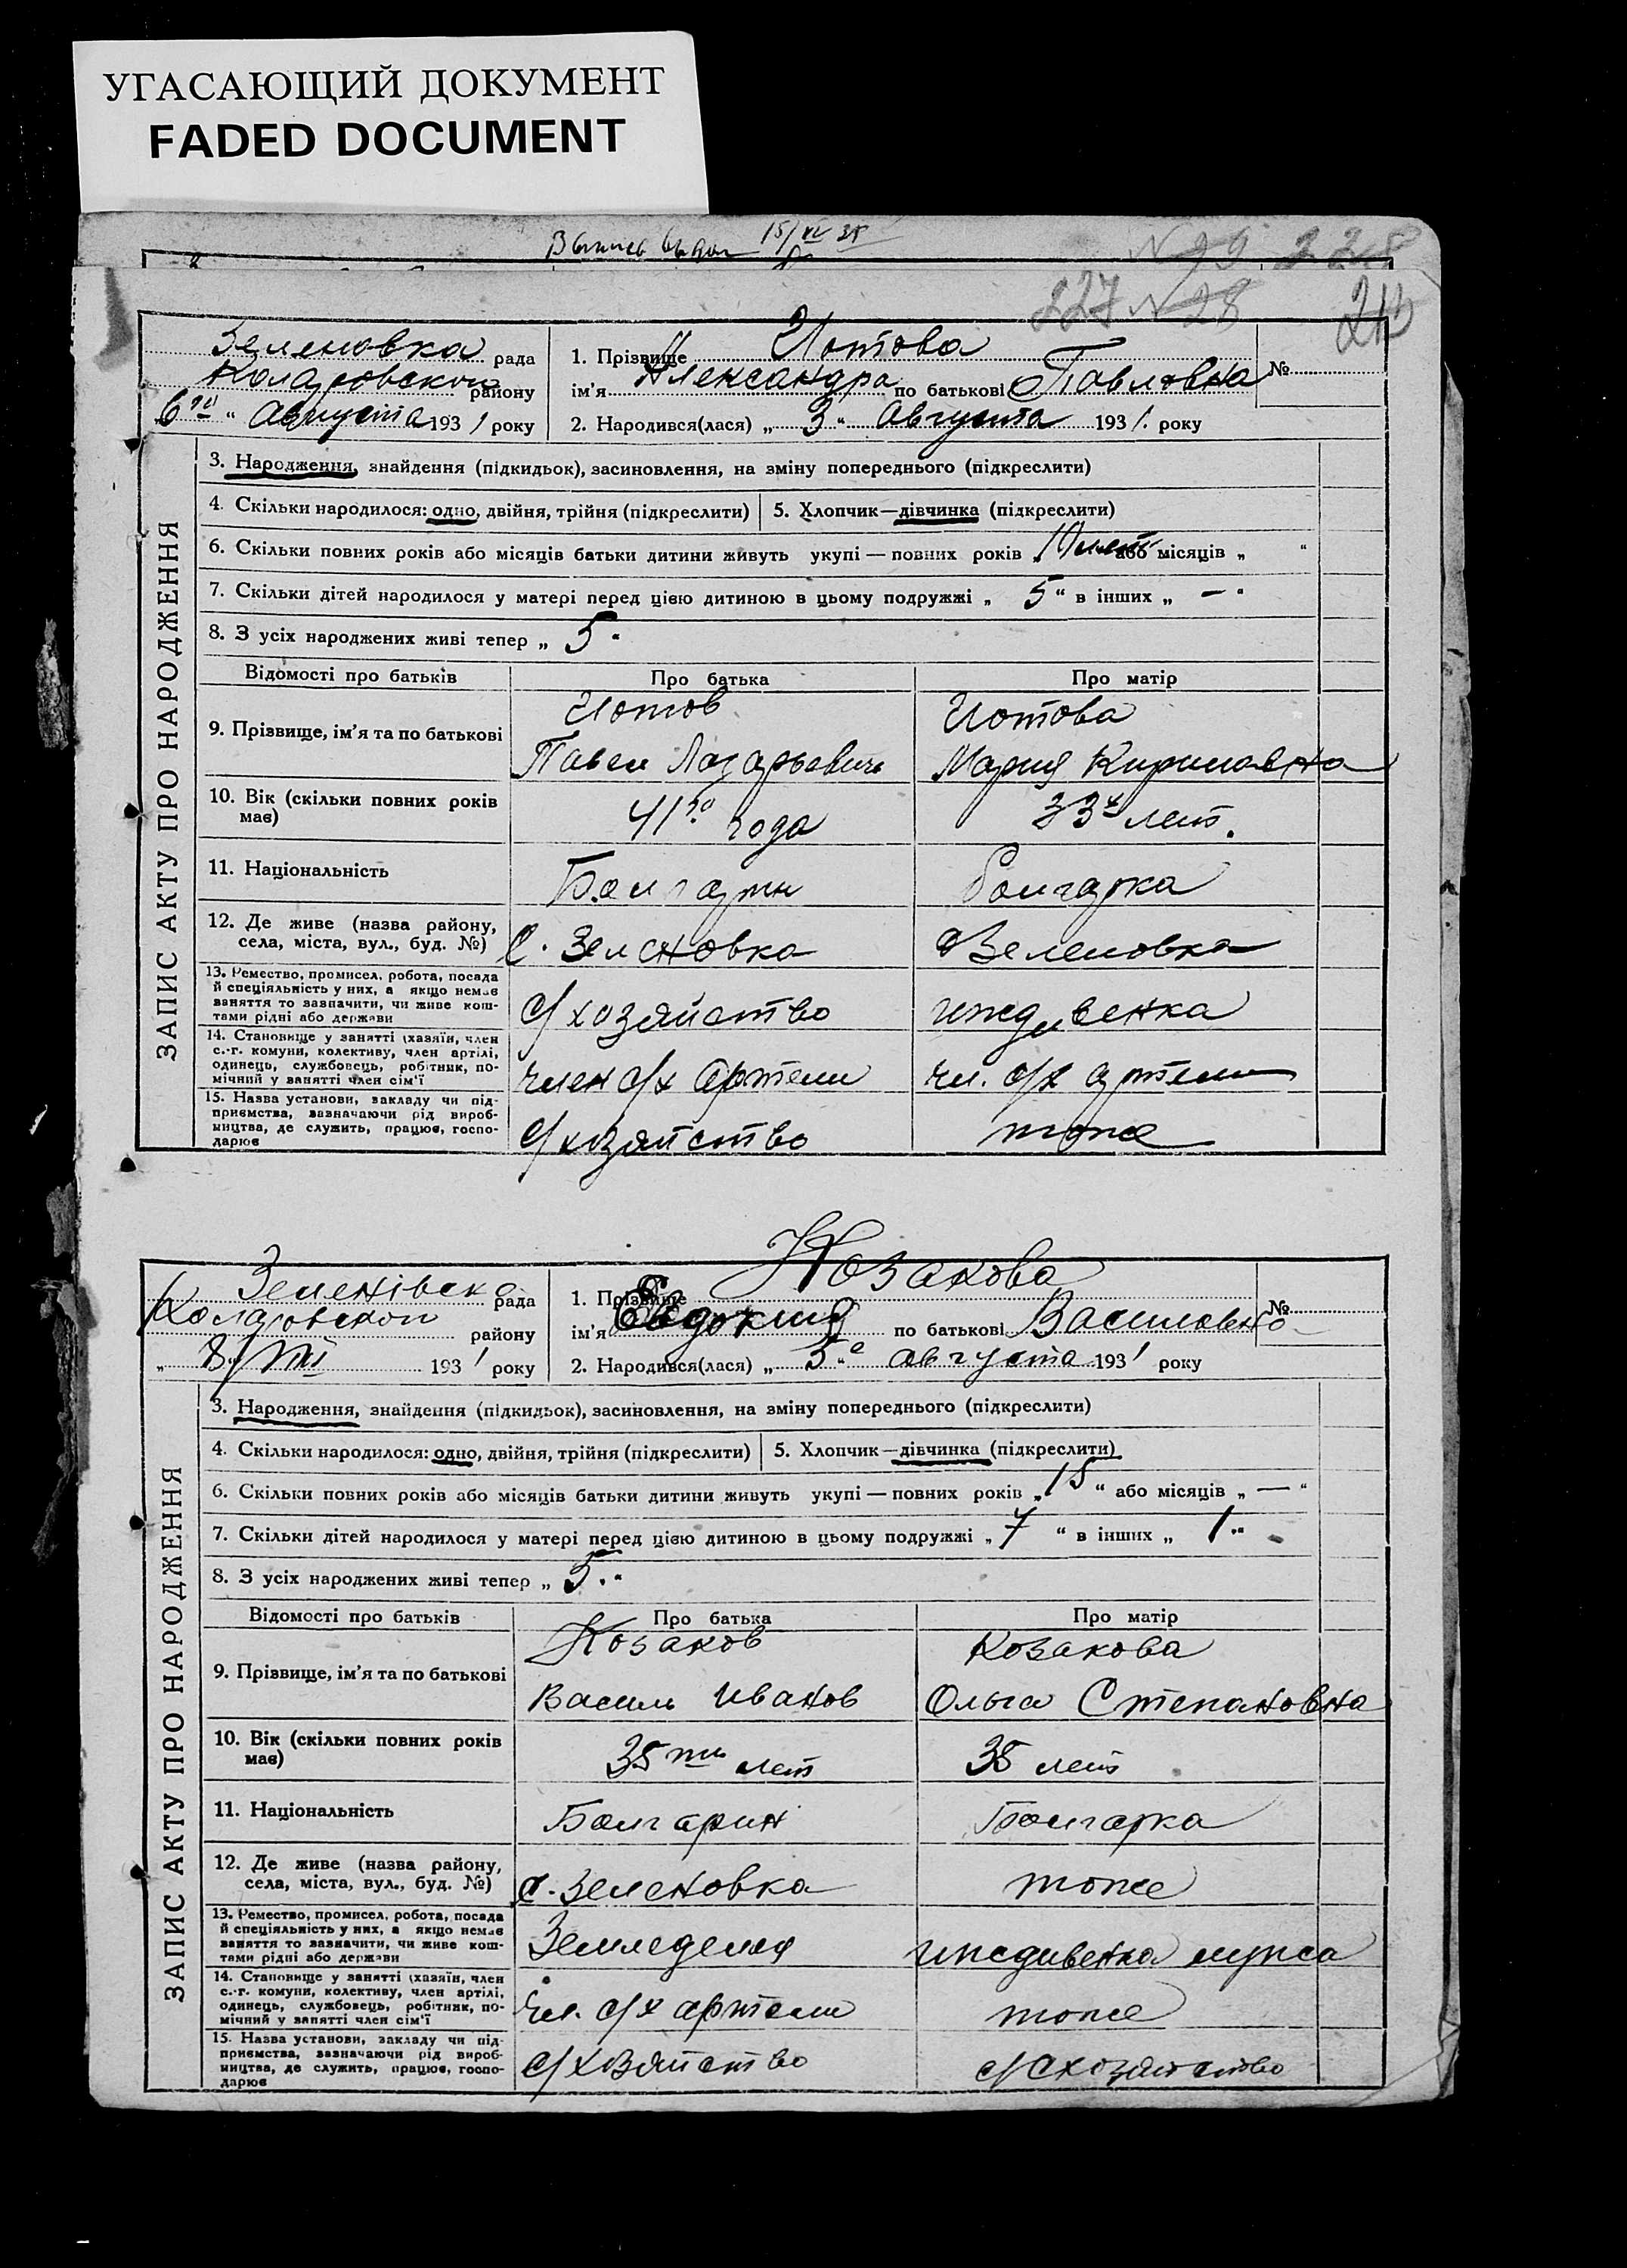 УГАСАЮЩИЙ ДОКУМЕНТ
FADED DOCUMENT
15/XI 38
N 29 228
227 N 28
Зеленовка рада
Коларовскои району
6го " Августа 1931 року
1. Прізвище Иотова
ім'я Александра по батькові Павловна
№
2. Народився(лася) „ 3 " Августа 1931. року
ЗАПИС АКТУ ПРО НАРОДЖЕННЯ
3. Народження, знайдення (підкидьок), засиновлення, на зміну попереднього (підкреслити)
4. Скільки народилося: одно, двійня, трійня (підкреслити) 5. Хлопчик—дівчинка (підкреслити)
6. Скільки повних років або місяців батьки дитини живуть укупі — повних років „ або місяців „ "
7. Скільки дітей народилося у матері перед цією дитиною в цьому подружжі „ 5 " в інших „ — "
8. З усіх народжених живі тепер „ 5 "
Відомості про батьків Про батька Про матір
9. Прізвище, ім'я та по батькові
Иотов
Павел Лазарьевичь
Иотова
Мария Кириловна
10. Вік (скільки повних років
має)
41го года
33х лет.
11. Національність
Болгарин
болгарка
12. Де живе (назва району,
села, міста, вул., буд. №)
С. Зеленовка
с Зеленовка
13. Ремество, промисел, робота, посада
й спеціяльність у них, а якщо немає
заняття то зазначити, чи живе кош-
тами рідні або держави
с/хозяйство
иждивенка
14. Становище у занятті (хазяїн, член
с.-г. комуни, колективу, член артілі,
одинець, службовець, робітник, по-
мічний у занятті член сім'ї
член с/х артели
чл. с/х артели
15. Назва установи, закладу чи під-
приємства, зазначаючи рід вироб-
ництва, де служить, працює, госпо-
дарює
с/хозяйство
тоже
Зеленівска рада
Коларовскои району
„ 8/VIII 1931 року
1. Прізвище Козакова
ім'я Евдокия по батькові Василовна
№
2. Народився(лася) „ 5 "го августа 1931 року
ЗАПИС АКТУ ПРО НАРОДЖЕННЯ
3. Народження, знайдення (підкидьок), засиновлення, на зміну попереднього (підкреслити)
4. Скільки народилося: одно, двійня, трійня (підкреслити) 5. Хлопчик—дівчинка (підкреслити)
6. Скільки повних років або місяців батьки дитини живуть укупі — повних років „ 15 " або місяців „ — "
7. Скільки дітей народилося у матері перед цією дитиною в цьому подружжі „ 7 " в інших „ 1 "
8. З усіх народжених живі тепер „ 5 "
Відомості про батьків Про батька Про матір
9. Прізвище, ім'я та по батькові
Козаков
Василь Иванов
Козакова
Ольга Степановна
10. Вік (скільки повних років
має)
35ти лет
35 лет
11. Національність
Болгарин
Болгарка
12. Де живе (назва району,
села, міста, вул., буд. №)
с. Зеленовка
тоже
13. Ремество, промисел, робота, посада
й спеціяльність у них, а якщо немає
заняття то зазначити, чи живе кош-
тами рідні або держави
Земледелия
иждивенка мужа
14. Становище у занятті (хазяїн, член
с.-г. комуни, колективу, член артілі,
одинець, службовець, робітник, по-
мічний у занятті член сім'ї
чл. с/х артели
тоже
15. Назва установи, закладу чи під-
приємства, зазначаючи рід вироб-
ництва, де служить, працює, госпо-
дарює
с/хозяйство
с/схозяйство